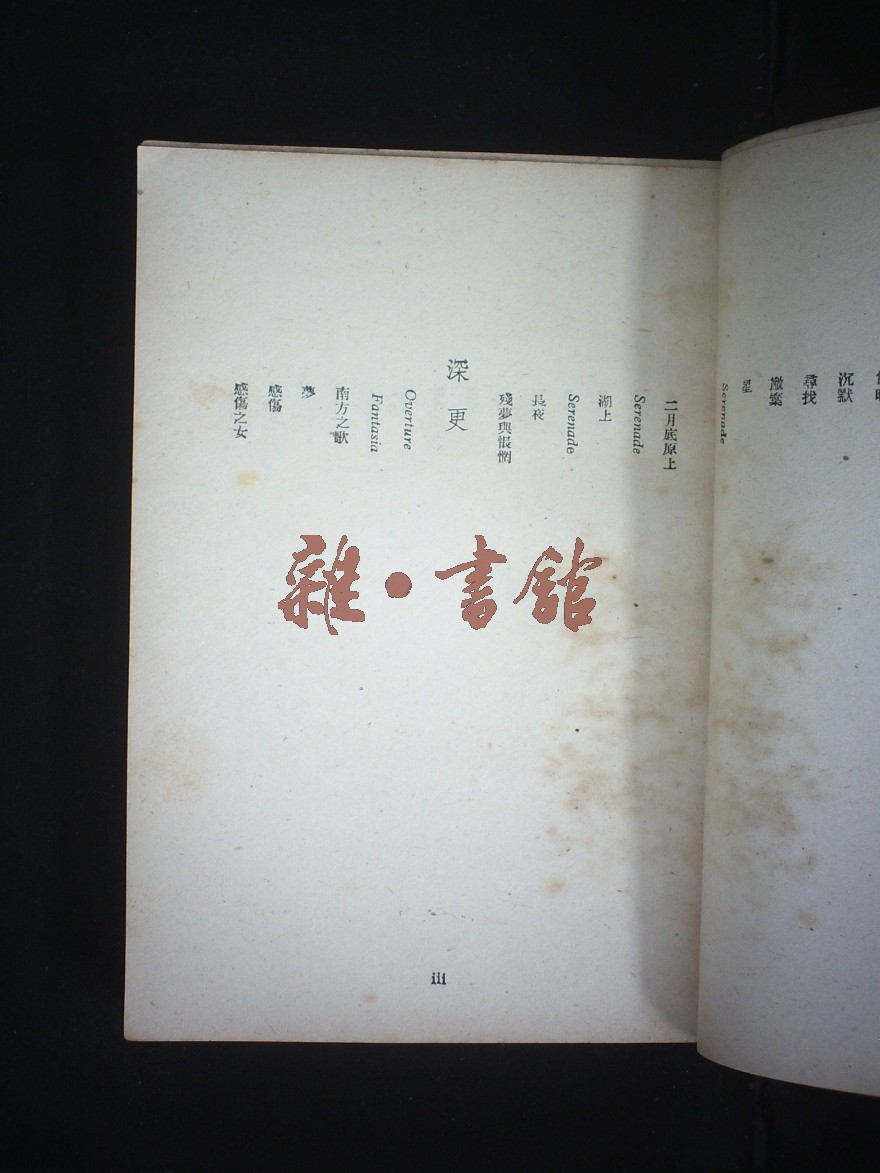 沉默
尋找
撤棄
星
Serenade
二月底原上
Serenade
湖上
Serenade
長夜
殘夢與悵惘
深更
Overture
Fantasia
南方之歌
夢
感傷
感傷之女
iii
雜·書館